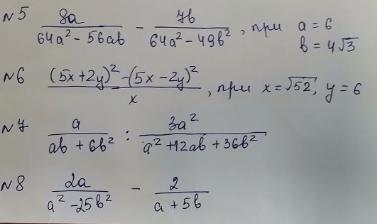 №5 8a / (64a² - 56ab) - 7b / (64a² - 49b²), при a = 6
b = 4√3
№6 ((5x+2y)² - (5x-2y)²) / x, при x = √52, y = 6
№7 a / (ab + 6b²) : 3a² / (a² + 12ab + 36b²)
№8 2a / (a² - 25b²) - 2 / (a + 5b)